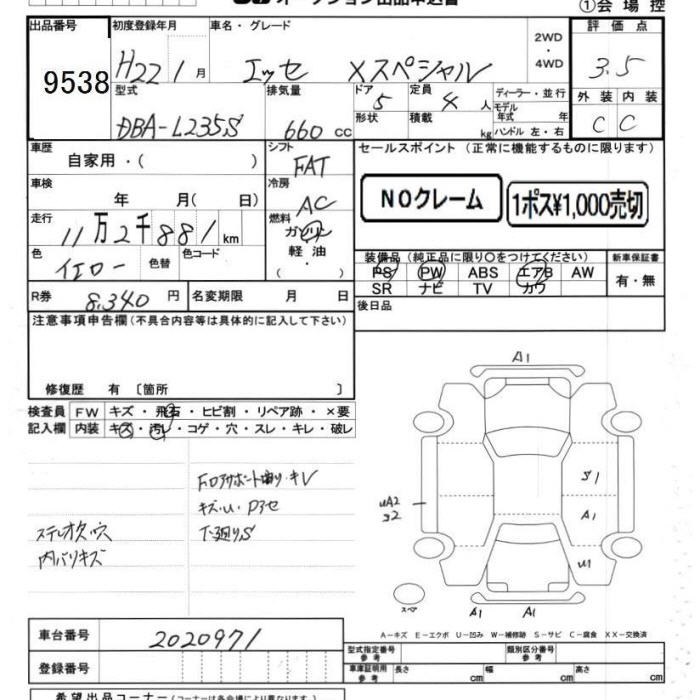 オークション出品申込書
①会場控
出品番号
9538
初度登録年月
H22年1月
車名・グレード
エッセ Xスペシャル
2WD
・
4WD
評価点
3.5
型式
DBA-L235S
排気量
660 cc
ドア
5
形状
定員
4 人
積載
kg
ディーラー・並行
モデル
年式 年
ハンドル 左・右
外装 内装
C C
車歴
自家用・( )
シフト
FAT
セールスポイント (正常に機能するものに限ります)
NOクレーム
1ポス¥1,000売切
車検
年 月( 日)
冷房
AC
走行
11万2千881km
燃料
ガソリン
軽油
( ・ )
色
イエロー
色替
色コード
装備品 (純正品に限り○をつけてください)
PS PW ABS エアB AW
SR ナビ TV カワ
新車保証書
有・無
R券
8,340 円
名変期限 月 日
後日品
注意事項申告欄 (不具合内容等は具体的に記入して下さい)
修復歴 有 〔箇所 〕
検査員
記入欄
FW キズ・飛石・ヒビ割・リペア跡・×要
内装 キズ・汚レ・コゲ・穴・スレ・キレ・破レ
キズ・U・Pスセ
下廻りS
ステレオ欠穴
内バリキズ
A1
S1
A1
U1
UA2
S2
スペア
A1
A1
A-キズ E-エクボ U-凹み W-補修跡 S-サビ C-腐食 XX-交換済
車台番号
2020971
登録番号
型式指定番号
参考
類別区分番号
参考
車庫証明用
参考
長さ cm 幅 cm 高さ cm
希望出品コーナー (コーナーは各会場により異なります)